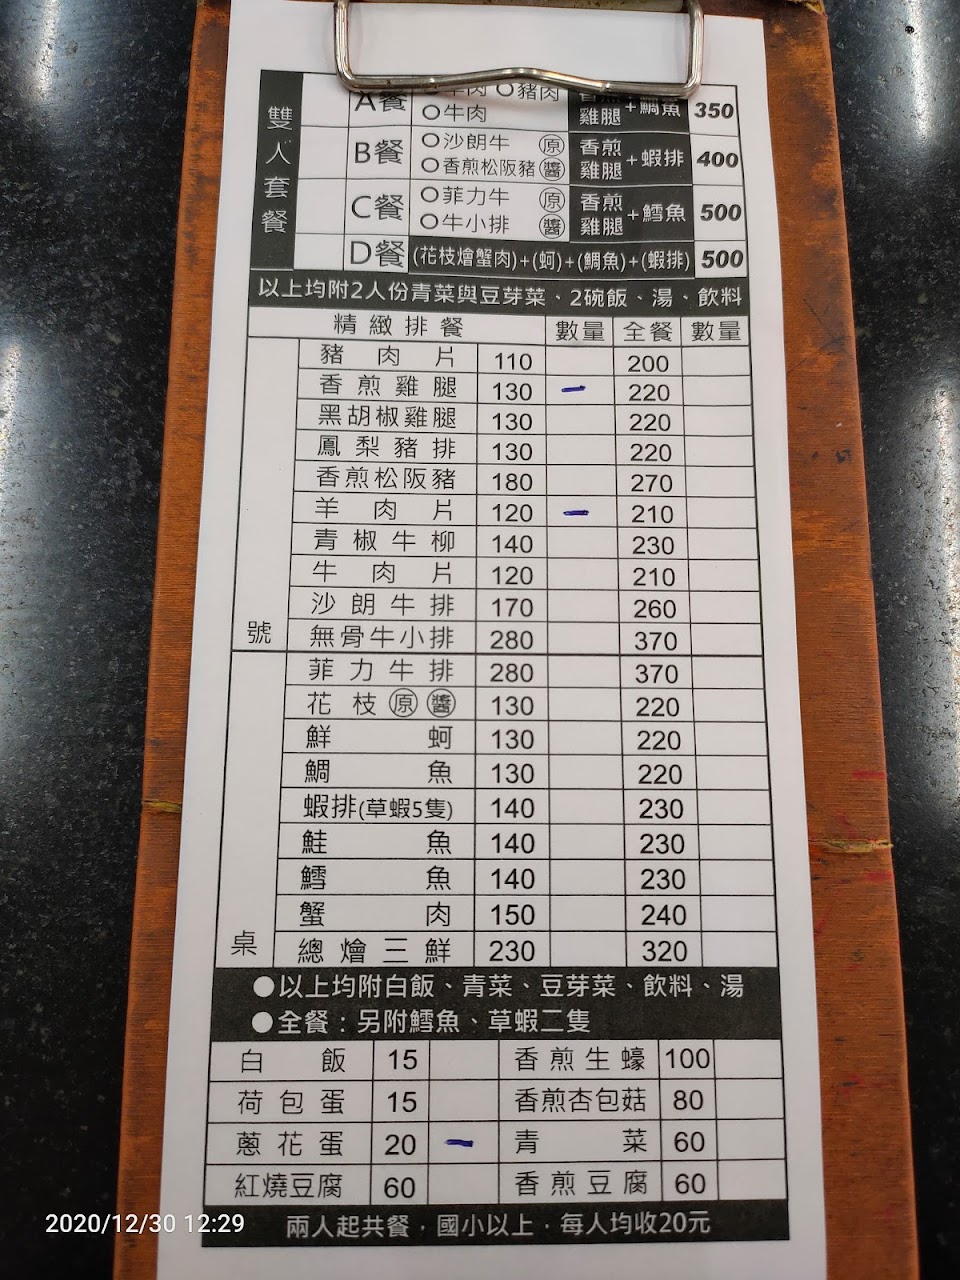 雙人套餐
A餐 牛肉 ○豬肉 香煎雞腿+鯛魚 350
○牛肉
B餐 ○沙朗牛 原 香煎雞腿+蝦排 400
○香煎松阪豬 醬
C餐 ○菲力牛 原 香煎雞腿+鱈魚 500
○牛小排 醬
D餐 (花枝燴蟹肉)+(蚵)+(鯛魚)+(蝦排) 500
以上均附2人份青菜與豆芽菜、2碗飯、湯、飲料
精緻排餐 數量 全餐 數量
豬肉片 110 200
香煎雞腿 130 一 220
黑胡椒雞腿 130 220
鳳梨豬排 130 220
香煎松阪豬 180 270
羊肉片 120 一 210
青椒牛柳 140 230
牛肉片 120 210
沙朗牛排 170 260
號 無骨牛小排 280 370
菲力牛排 280 370
花枝 原 醬 130 220
鮮蚵 130 220
鯛魚 130 220
蝦排(草蝦5隻) 140 230
鮭魚 140 230
鱈魚 140 230
蟹肉 150 240
桌 總燴三鮮 230 320
●以上均附白飯、青菜、豆芽菜、飲料、湯
●全餐：另附鱈魚、草蝦二隻
白飯 15 香煎生蠔 100
荷包蛋 15 香煎杏包菇 80
蔥花蛋 20 一 青菜 60
紅燒豆腐 60 香煎豆腐 60
兩人起共餐，國小以上，每人均收20元
2020/12/30 12:29